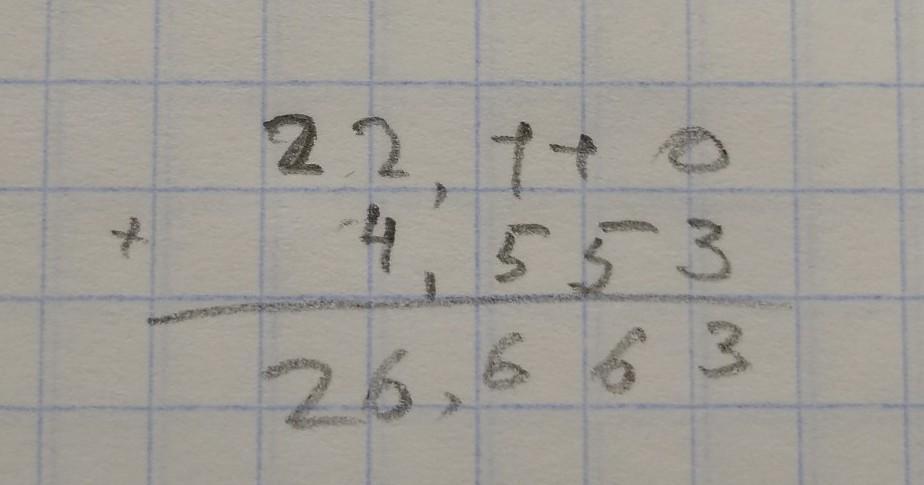 22,110
+ 4,553
26,663